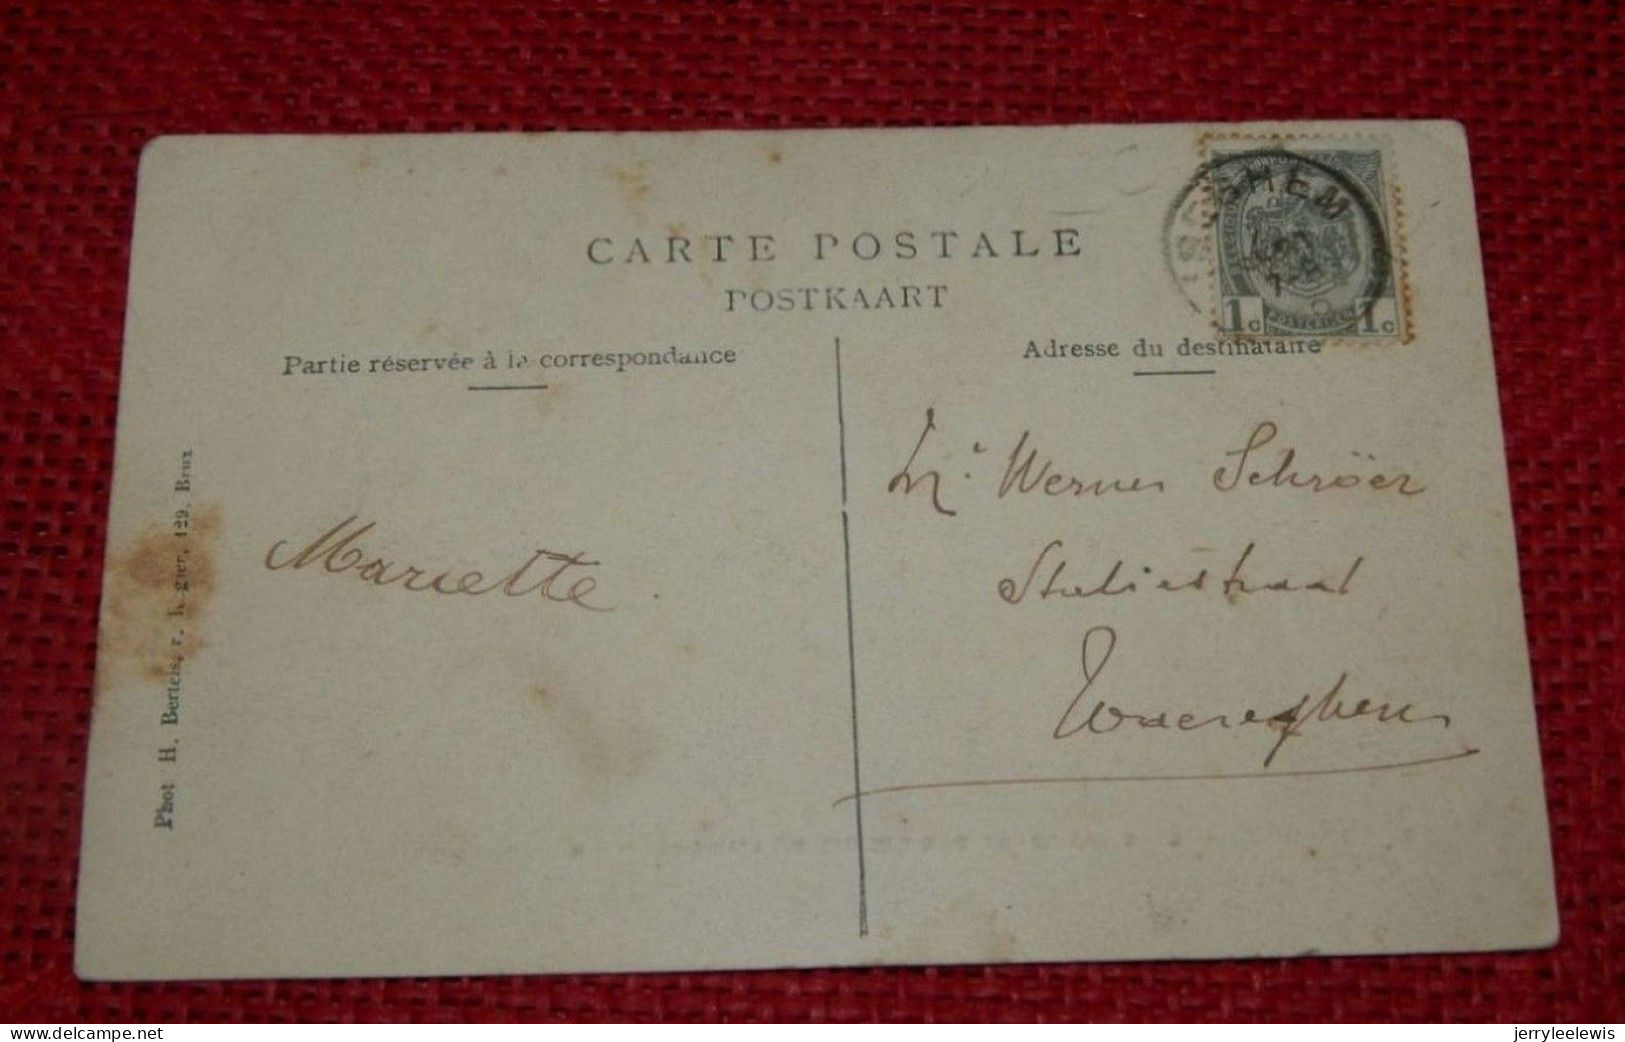 CARTE POSTALE
POSTKAART
Partie réservée à la correspondance
Adresse du destinataire
1c 1c
Mr Werner Schröer
Statiestraat
Waereghem
Mariette.
Phot H. Bertels, r. 129, Brux
delcampe.net
jerryleelewis